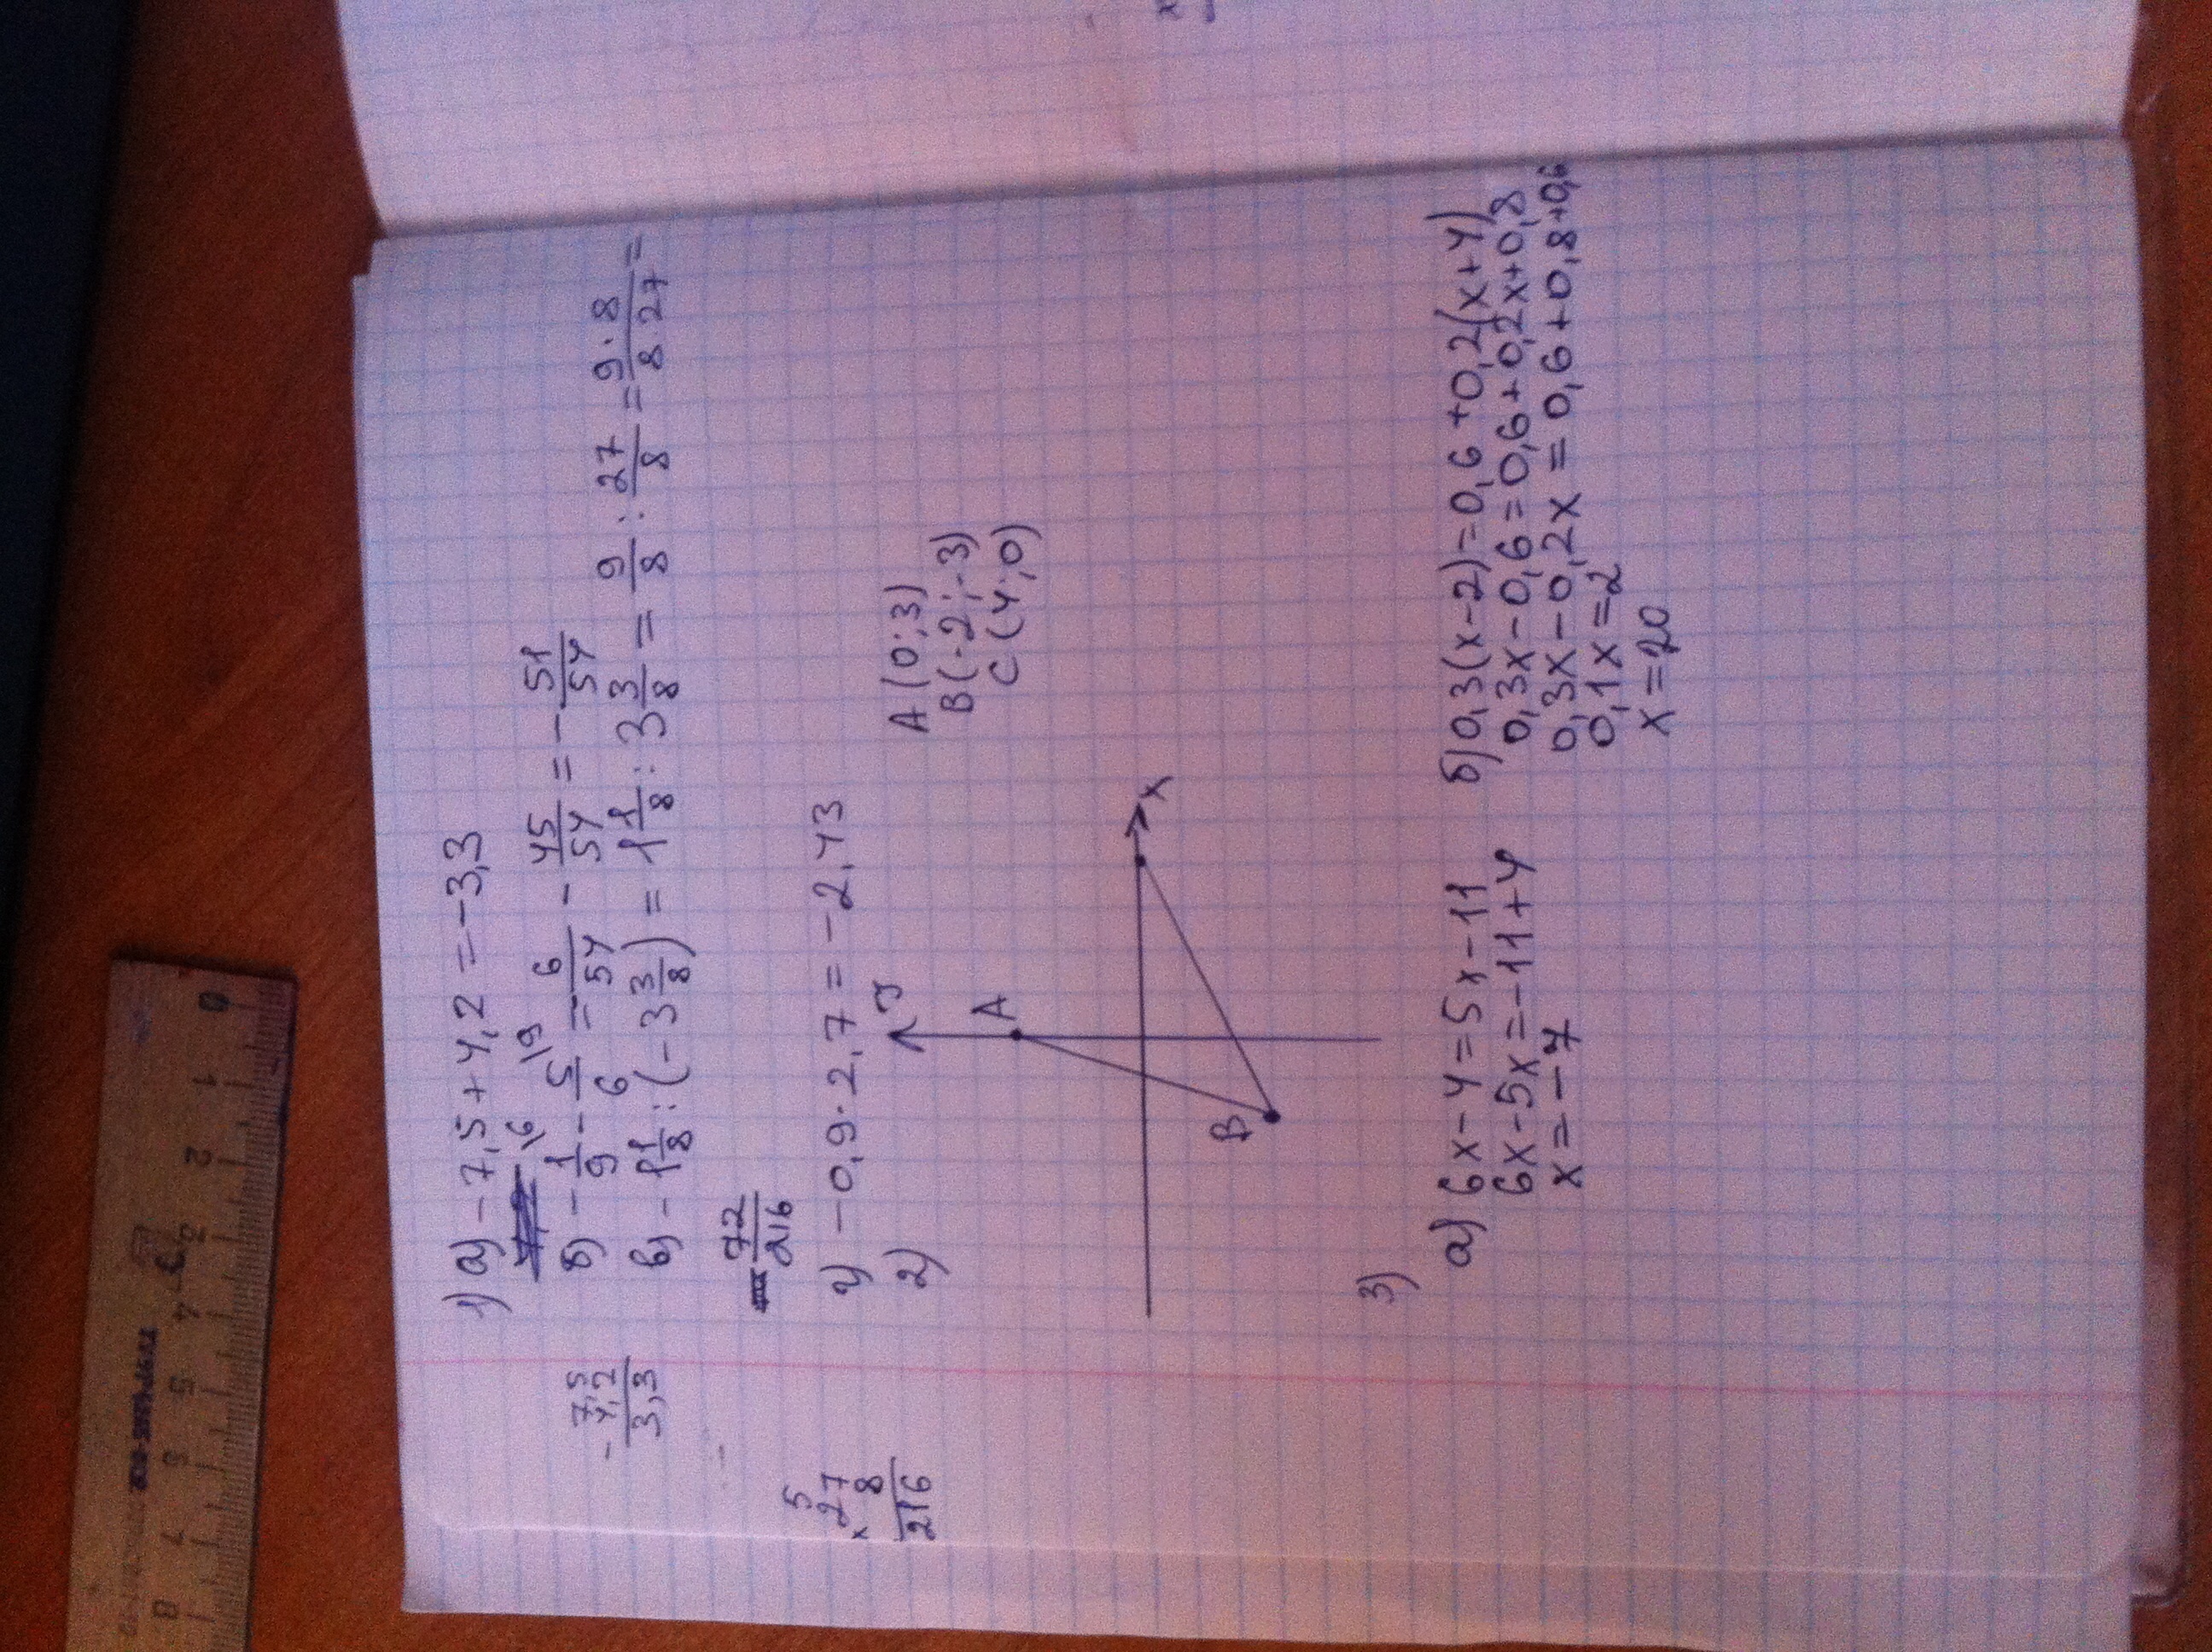 1) а) -7,5+4,2=-3,3
/6 /9
б) -1/9 - 5/6 = -6/54 - 45/54 = -51/54
в) -1 1/8 : (-3 3/8) = 1 1/8 : 3 3/8 = 9/8 : 27/8 = 9·8/8 27 =
72/216
г) -0,9·2,7=-2,43
2)
y
A
B
x
A(0;3)
B(-2;-3)
C(4;0)
3)
а) 6x-4=5x-11
6x-5x=-11+4
x=-7
б) 0,3(x-2)=0,6+0,2(x+4)
0,3x-0,6=0,6+0,2x+0,8
0,3x-0,2x=0,6+0,8+0,6
0,1x=2
x=20
- 7,5
4,2
3,3
5
× 27
8
216
0 1 2 3 4 5 6 7 8